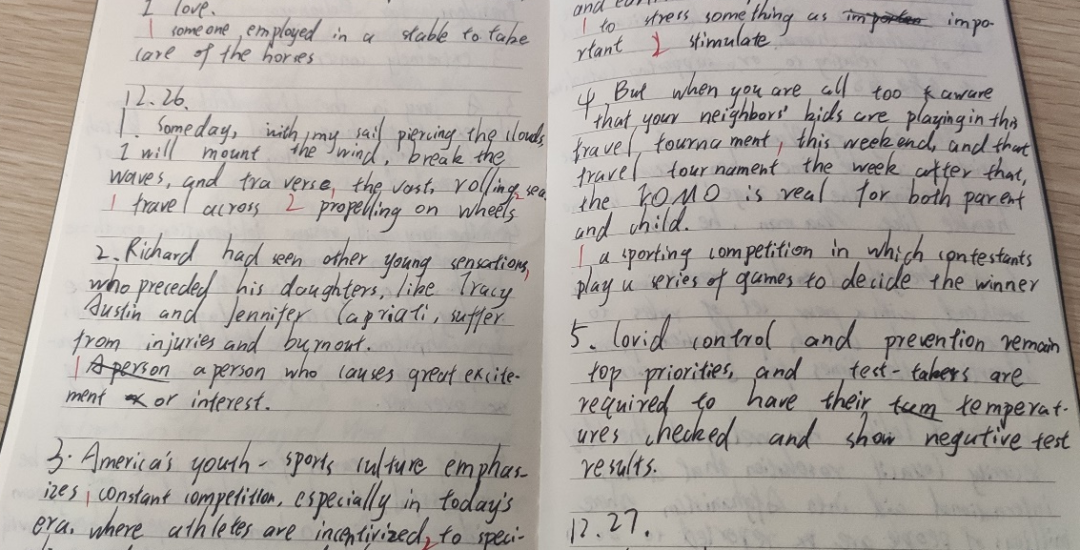 1 love.
1 someone employed in a stable to take
care of the horses
12.26.
1. Someday, with my sail piercing the clouds,
I will mount the wind, break the
waves, and traverse 1 the vast, rolling 2 sea
1 travel across 2 propelling on wheels
2. Richard had seen other young sensations, 1
who preceded his daughters, like Tracy
Austin and Jennifer Capriati, suffer
from injuries and burnout.
1 A person a person who causes great excite-
ment or interest.
3. America's youth-sports culture emphas-
izes 1 constant competition, especially in today's
era, where athletes are incentivized 2 to speci-
1 to stress something as importan impo-
rtant 2 stimulate
4 But when you are all too aware
that your neighbors' kids are playing in this
travel tournament 1 this weekend, and that
travel tournament the week after that,
the FOMO is real for both parent
and child.
1 a sporting competition in which contestants
play a series of games to decide the winner
5. Covid control and prevention remain
top priorities, and test-takers are
required to have their tem temperat-
ures checked and show negative test
results.
12.27.